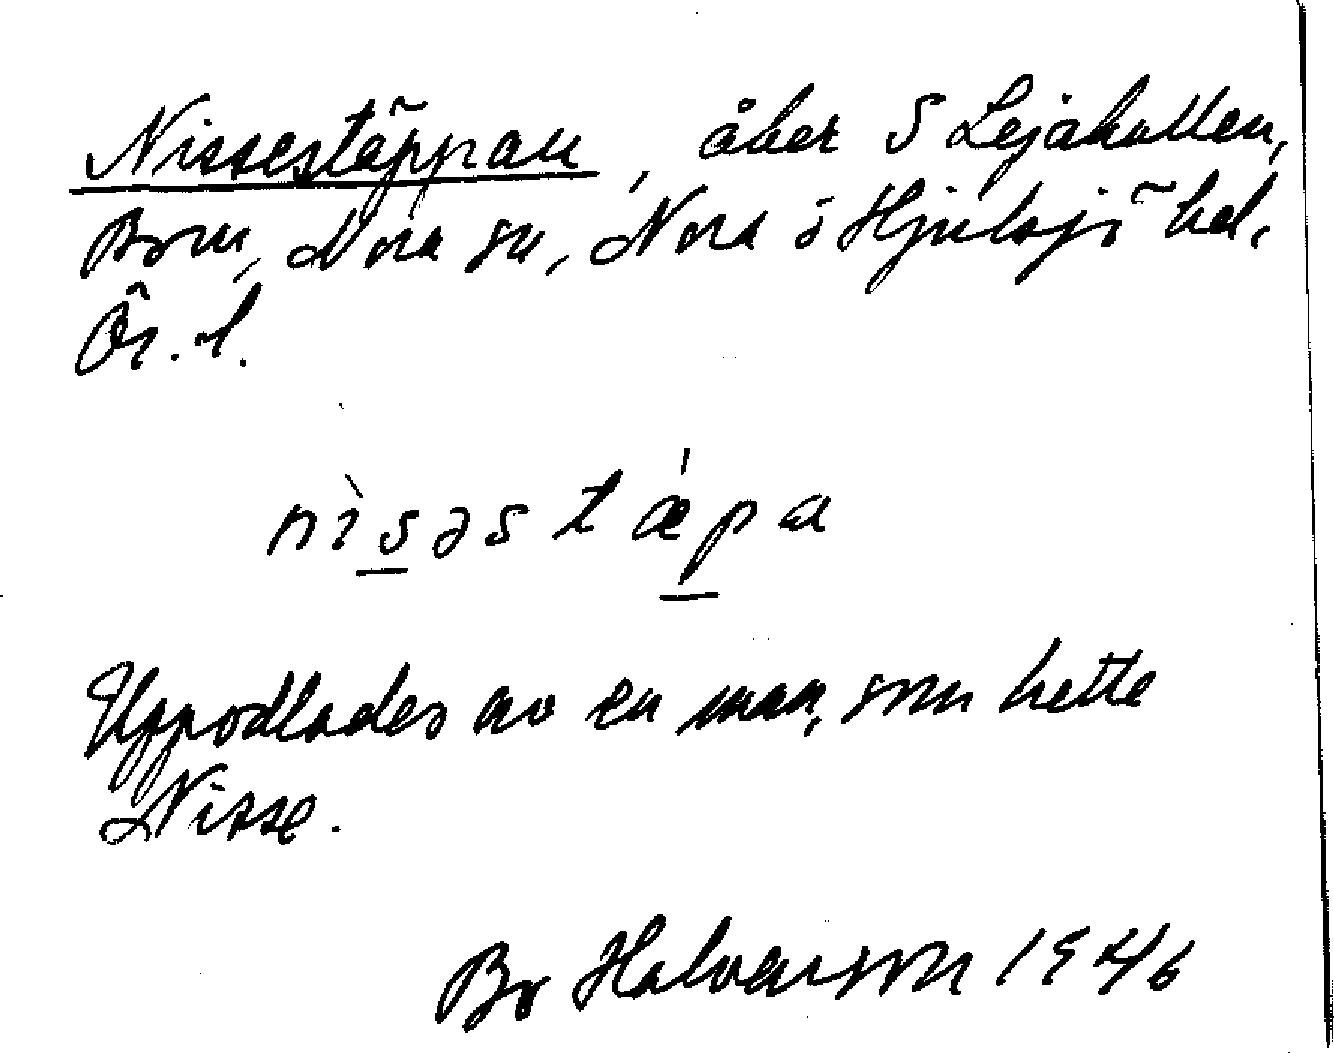 Nissestäppan, åker S Lejakullen,
Born, Nora sn, Nora o Hjulsjö hd,
Ör. l.
nìsəstǽpa
Uppodlades av en man, som hette
Nisse.
Bo Halvarson 1946